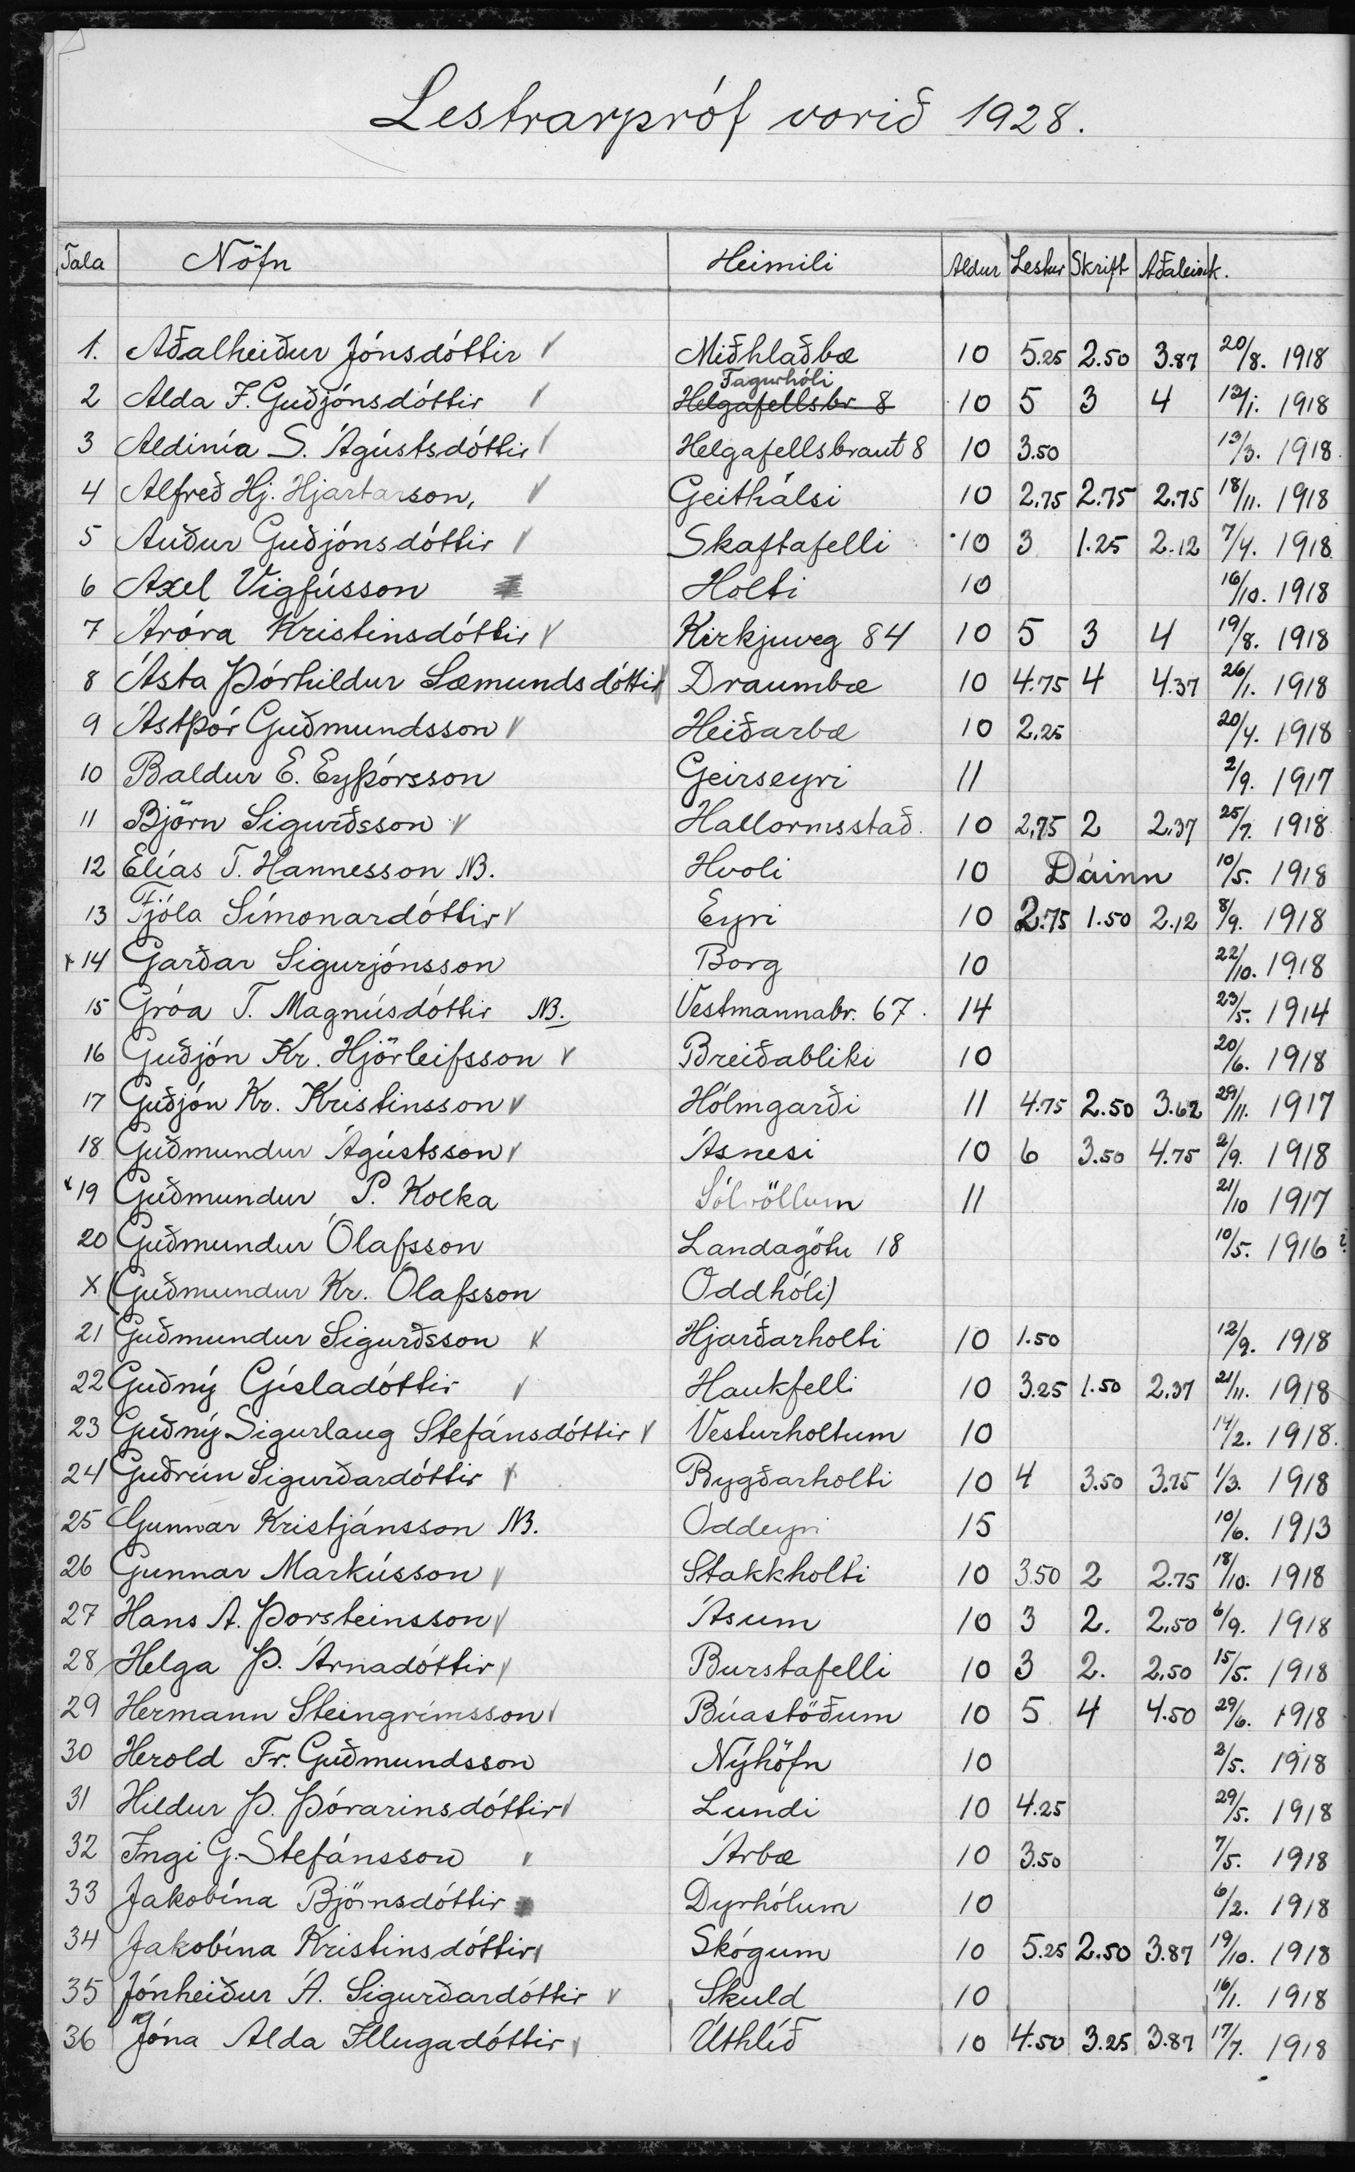 Lestrarpróf vorið 1928.
Tala Nöfn Heimili Aldur Lestur Skrift Aðaleink.
1. Aðalheiður Jónsdóttir ✓ Miðhlaðbæ 10 5.25 2.50 3.87 20/8. 1918
Fagurhóli
2 Alda F. Guðjónsdóttir ✓ Helgafellsbr 8 10 5 3 4 12/1. 1918
3 Aldinía S. Ágústsdóttir ✓ Helgafellsbraut 8 10 3.50 13/3. 1918.
4 Alfreð Hj. Hjartarson, ✓ Geithálsi 10 2.75 2.75 2.75 18/11. 1918
5 Auður Guðjónsdóttir ✓ Skaftafelli 10 3 1.25 2.12 7/4. 1918
6 Axel Vigfússon Holti 10 16/10. 1918
7 Áróra Kristinsdóttir ✓ Kirkjuveg 84 10 5 3 4 19/8. 1918
8 Ásta Þórhildur Sæmundsdóttir ✓ Draumbæ 10 4.75 4 4.37 26/1. 1918
9 Ástþór Guðmundsson ✓ Heiðarbæ 10 2.25 20/4. 1918
10 Baldur E. Eyþórsson Geirseyri 11 2/9. 1917
11 Björn Sigurðsson ✓ Hallormsstað. 10 2.75 2 2.37 25/7. 1918
12 Elías T. Hannesson NB. Hvoli 10 Dáinn 10/5. 1918
13 Fjóla Símonardóttir ✓ Eyri 10 2.75 1.50 2.12 8/9. 1918
x 14 Garðar Sigurjónsson Borg 10 22/10. 1918
15 Gróa T. Magnúsdóttir NB. Vestmannabr. 67. 14 23/5. 1914
16 Guðjón Kr. Hjörleifsson ✓ Breiðabliki 10 20/6. 1918
17 Guðjón Kr. Kristinsson ✓ Hólmgarði 11 4.75 2.50 3.62 29/11. 1917
18 Guðmundur Ágústsson ✓ Ásnesi 10 6 3.50 4.75 2/9. 1918
x 19 Guðmundur P. Kolka Sólvöllum 11 21/10 1917
20 Guðmundur Ólafsson Landagötu 18 10/5. 1916 ?
X (Guðmundur Kr. Ólafsson Oddhóli)
21 Guðmundur Sigurðsson ✓ Hjarðarholti 10 1.50 12/9. 1918
22 Guðný Gísladóttir ✓ Haukfelli 10 3.25 1.50 2.37 21/11. 1918
23 Guðný Sigurlaug Stefánsdóttir ✓ Vesturholtum 10 14/2. 1918.
24 Guðrún Sigurðardóttir ✓ Bygðarholti 10 4 3.50 3.75 1/3. 1918
25 Gunnar Kristjánsson NB. Oddeyri 15 10/6. 1913
26 Gunnar Markússon ✓ Stakkholti 10 3.50 2 2.75 18/10. 1918
27 Hans A. Þorsteinsson ✓ Ásum 10 3 2. 2.50 6/9. 1918
28 Helga Þ. Árnadóttir ✓ Burstafelli 10 3 2. 2.50 15/5. 1918
29 Hermann Steingrímsson ✓ Búastöðum 10 5 4 4.50 29/6. 1918
30 Herold Fr. Guðmundsson Nýhöfn 10 2/5. 1918
31 Hildur Þ. Þórarinsdóttir ✓ Lundi 10 4.25 29/5. 1918
32 Ingi G. Stefánsson ✓ Árbæ 10 3.50 7/5. 1918
33 Jakobína Björnsdóttir Dyrhólum 10 6/2. 1918
34 Jakobína Kristinsdóttir ✓ Skógum 10 5.25 2.50 3.87 19/10. 1918
35 Jónheiður Á. Sigurðardóttir ✓ Skuld 10 16/1. 1918
36 Jóna Alda Illugadóttir ✓ Úthlíð 10 4.50 3.25 3.87 17/7. 1918